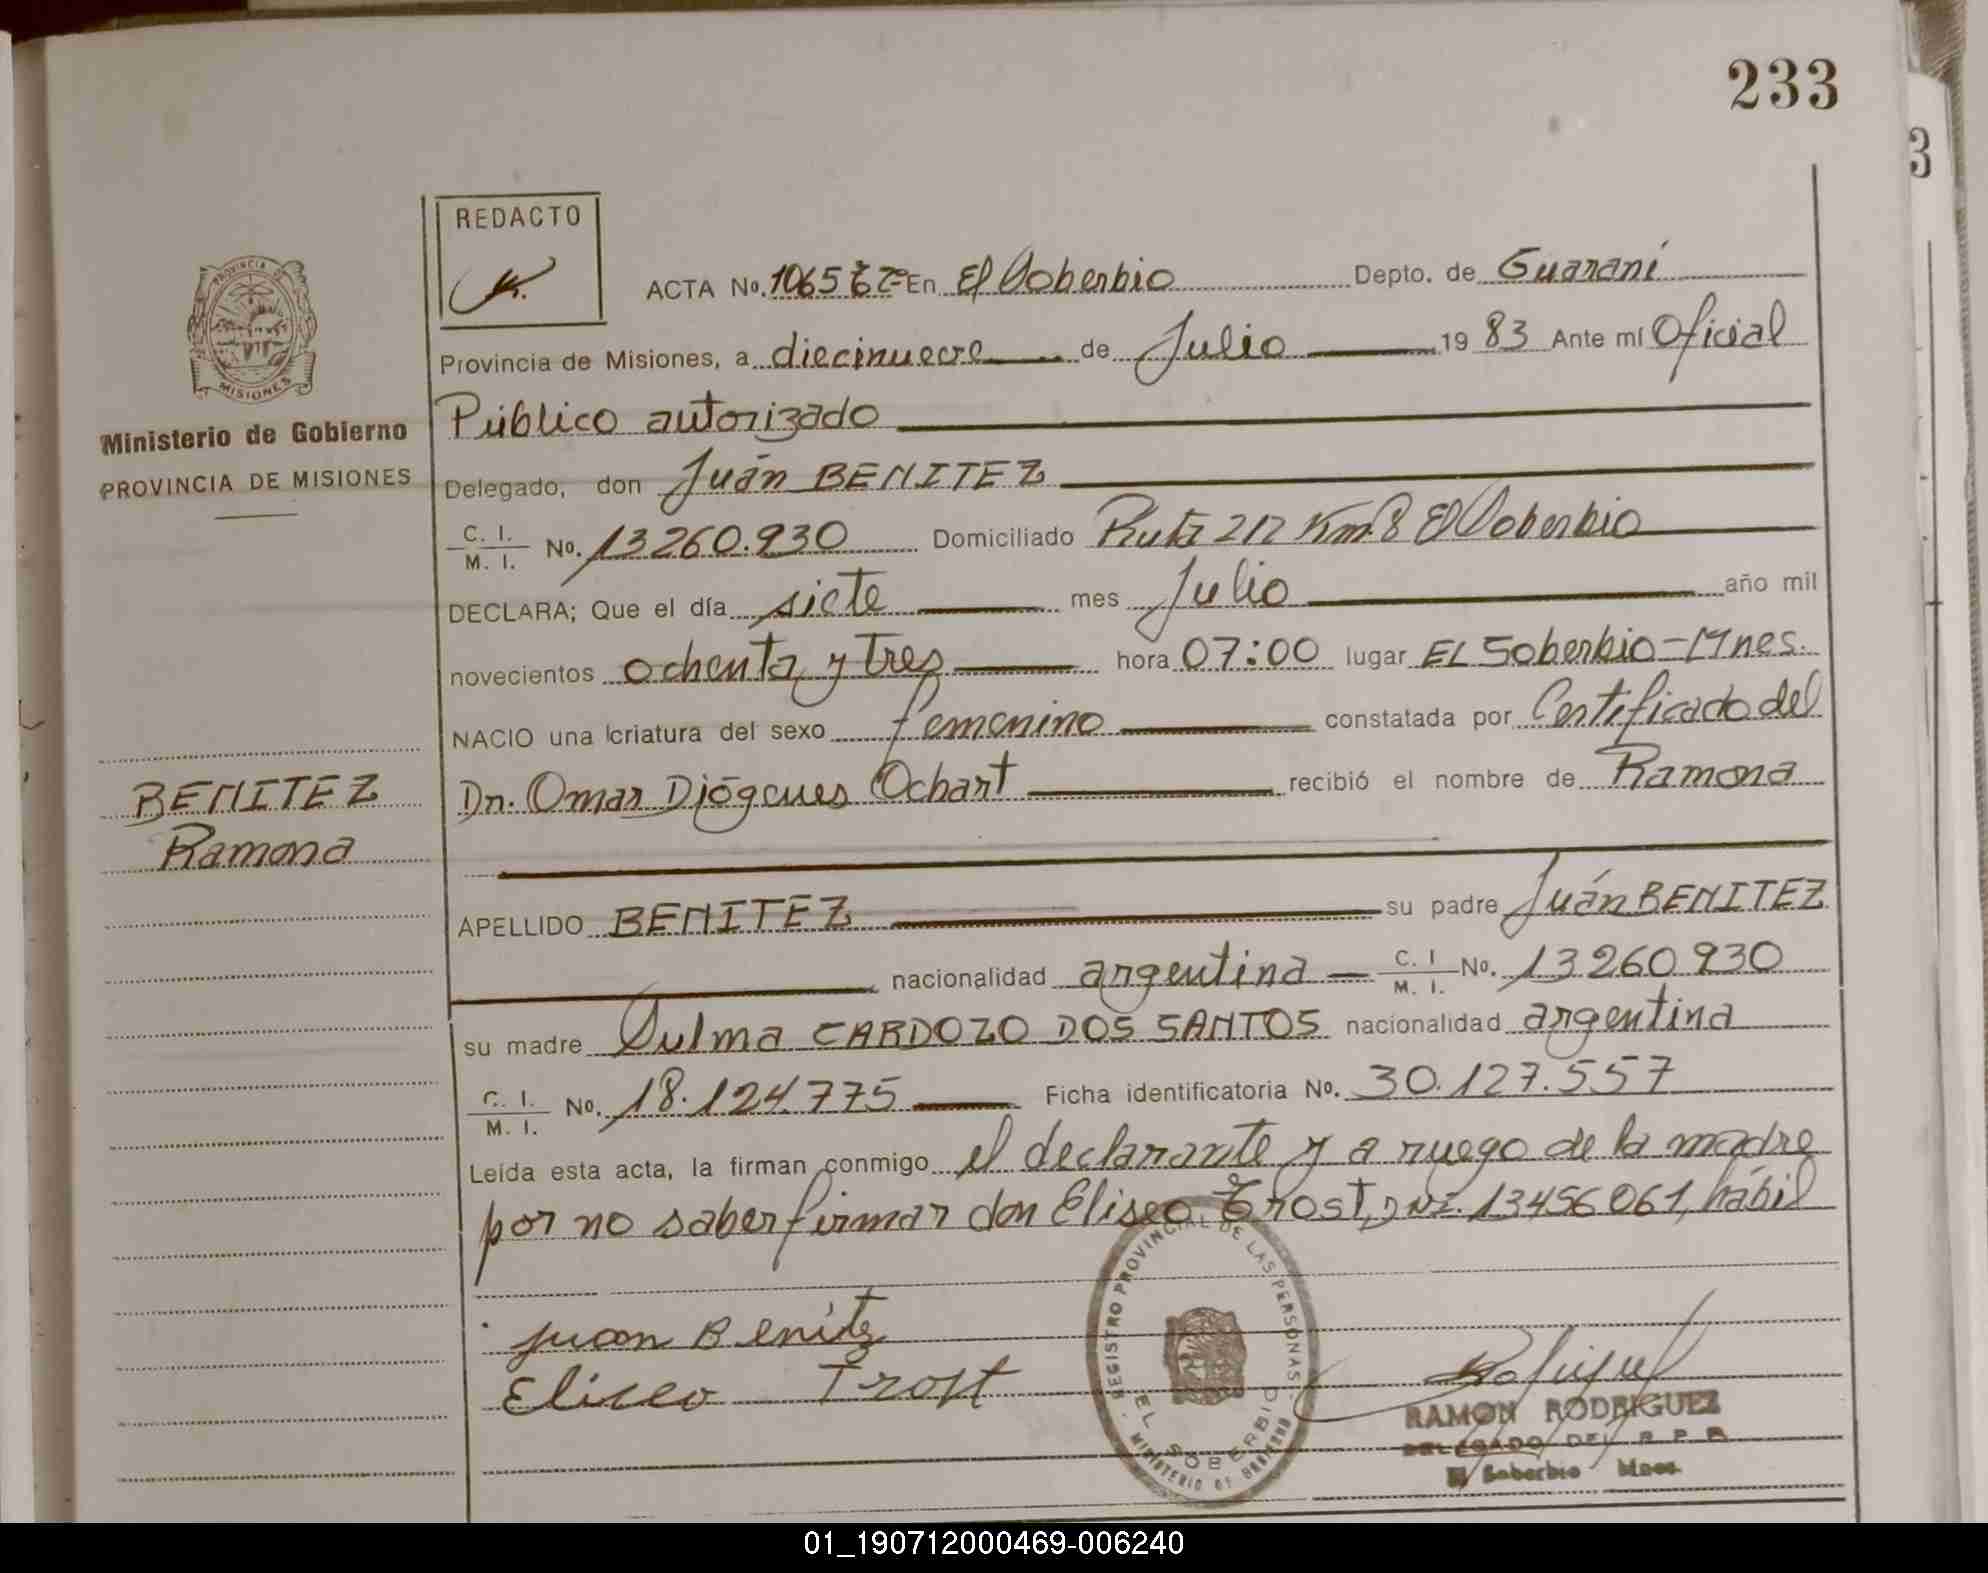 233
3
REDACTO
PROVINCIA DE
MISIONES
Ministerio de Gobierno
PROVINCIA DE MISIONES
ACTA No. 1065 En El Soberbio Depto. de Guaraní
Provincia de Misiones, a diecinueve de Julio 19 83 Ante mí Oficial
Público autorizado
Delegado, don Juán BENITEZ
C. I. M. I. No. 13260.930 Domiciliado Ruta 212 Km. 8 El Soberbio
DECLARA; Que el día siete mes Julio año mil
novecientos ochenta y tres hora 07:00 lugar EL Soberbio-Mnes.
NACIO una criatura del sexo femenino constatada por Certificado del
BENITEZ
Ramona
Dr. Omar Diógenes Ochart recibió el nombre de Ramona
APELLIDO BENITEZ su padre Juán BENITEZ
nacionalidad argentina C. I M. I. No. 13260930
su madre Sulma CARDOZO DOS SANTOS nacionalidad argentina
C. I. M. I. No. 18.124.775 Ficha identificatoria No. 30.127.557
Leída esta acta, la firman conmigo el declarante y a ruego de la madre
por no saber firmar don Eliseo Trost, DNI. 13456061, hábil
Juan Benitez
Eliseo Trost
REGISTRO PROVINCIAL DE LAS PERSONAS
EL SOBERBIO
MINISTERIO DE GOBIERNO
RAMON RODRIGUEZ
DELEGADO DEL R P P
El Soberbio Mnes.
01_190712000469-006240